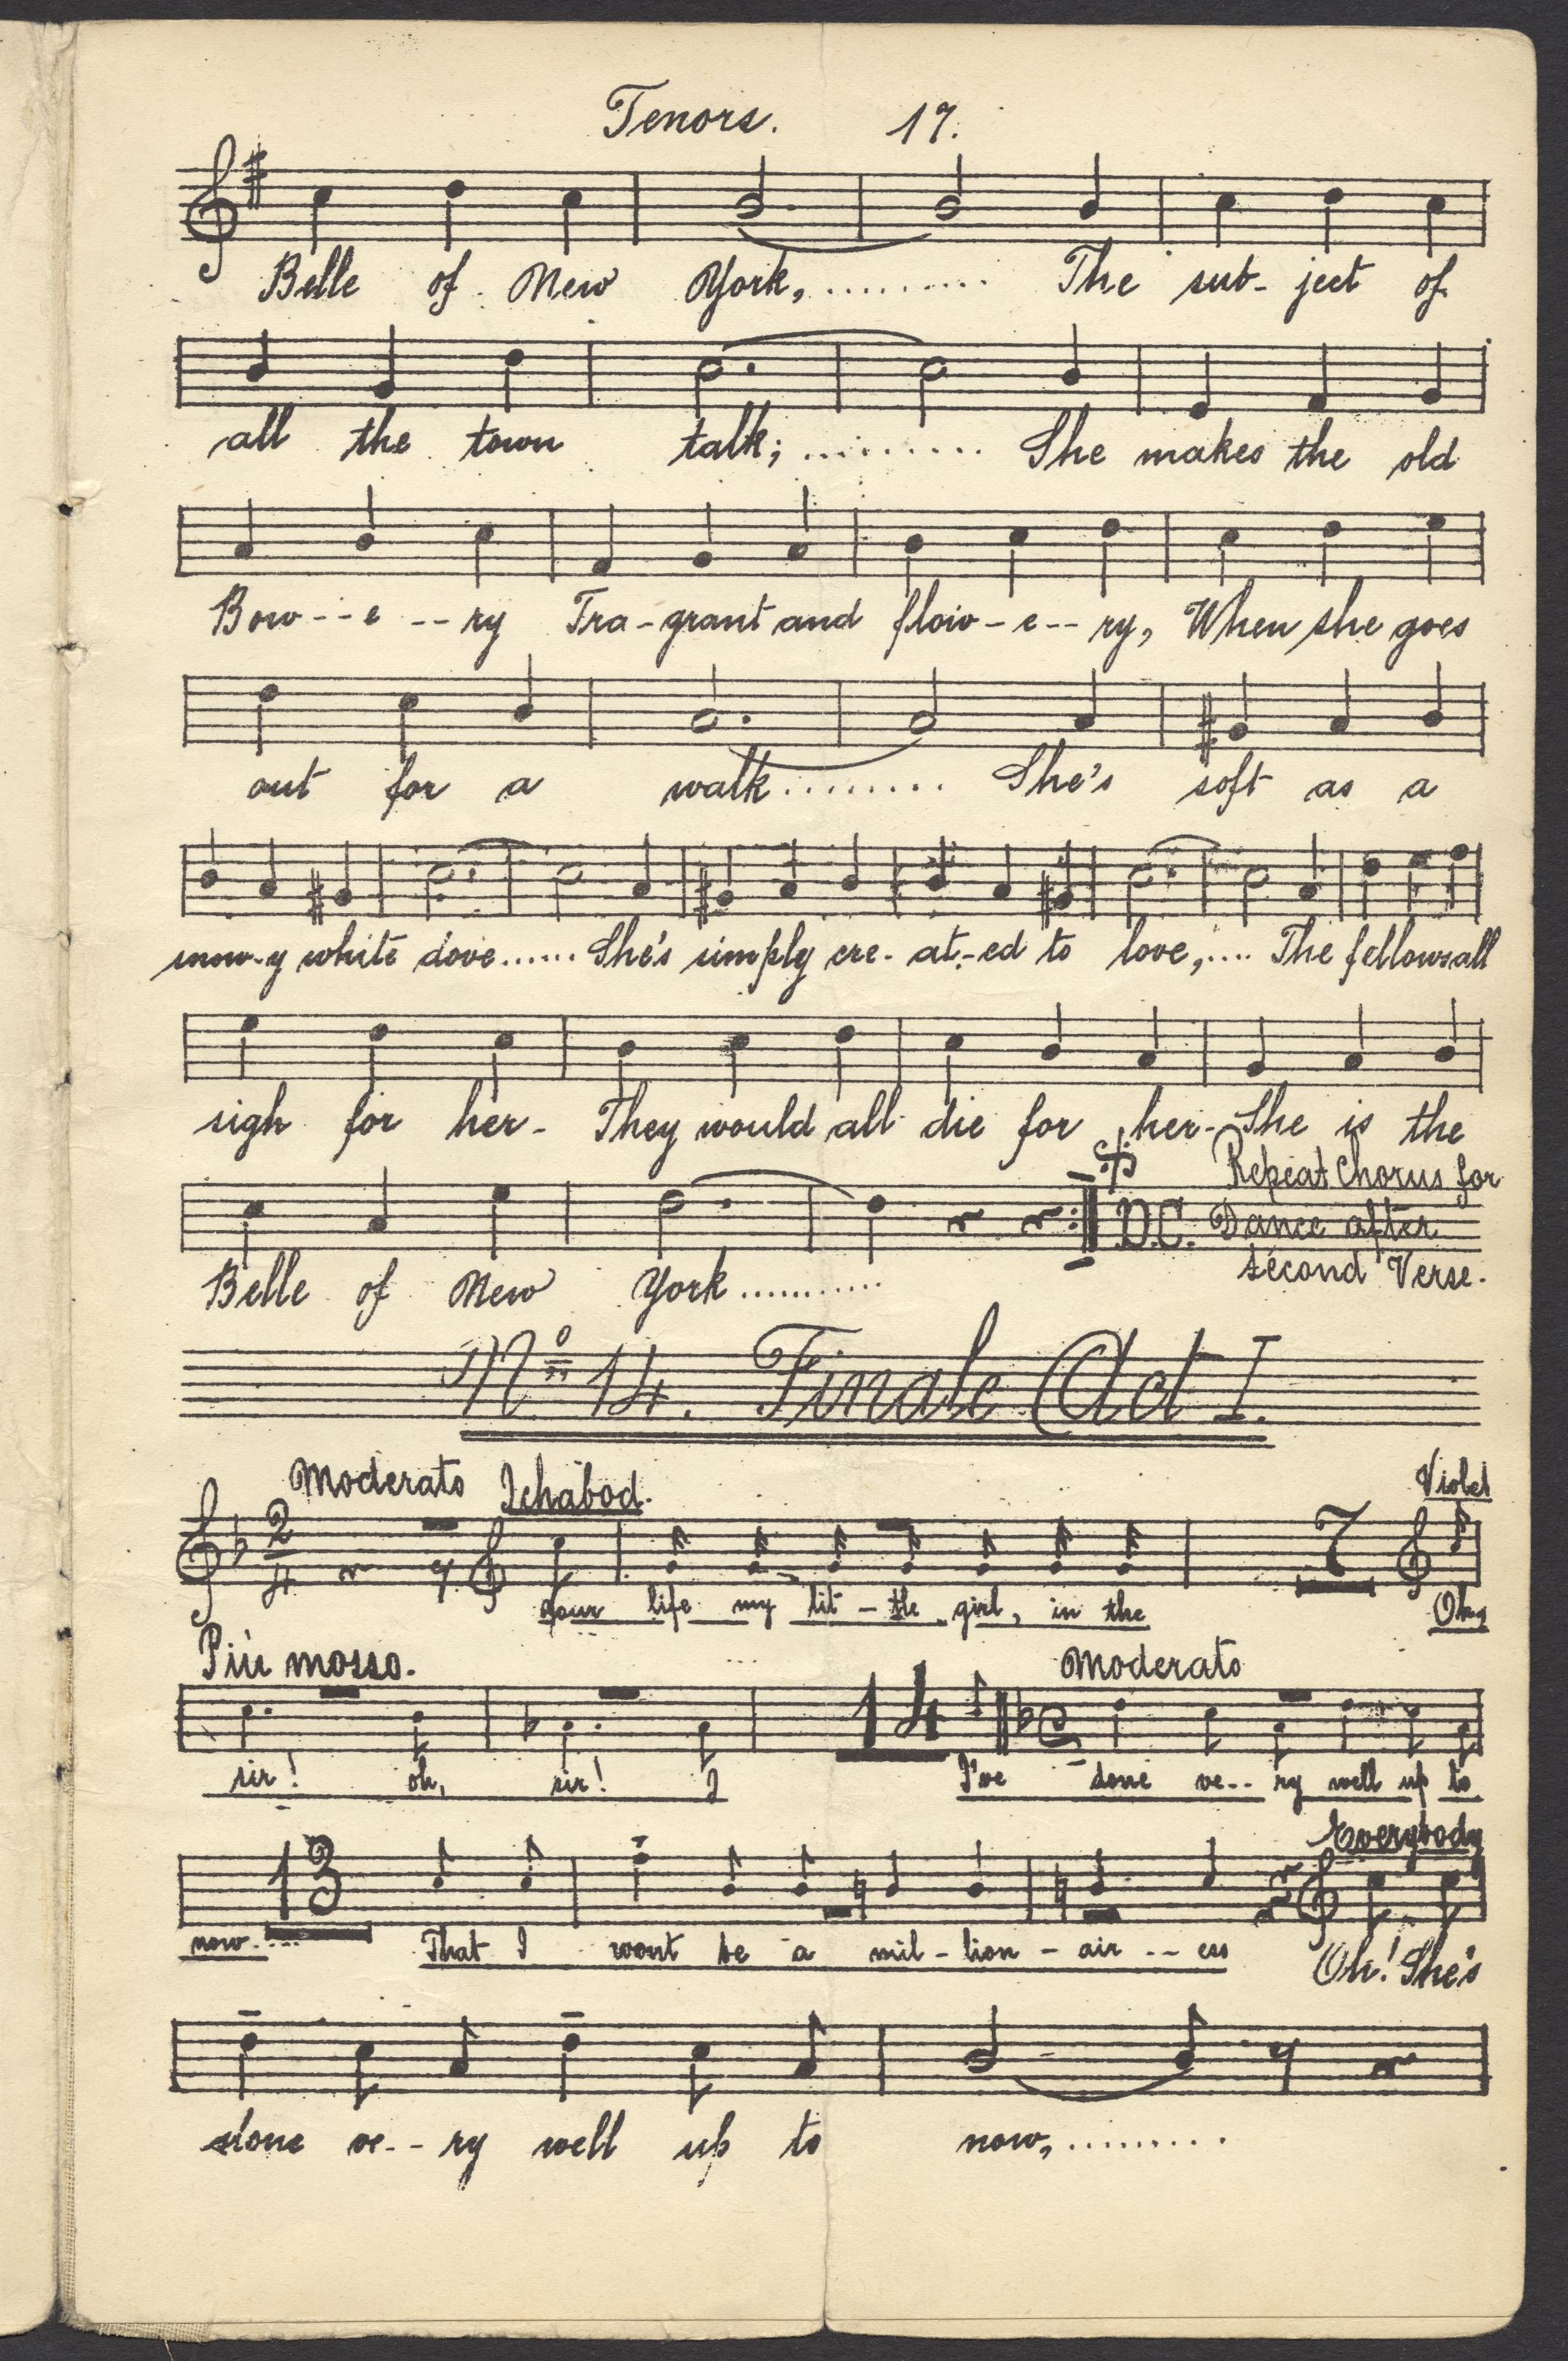 Tenors. 17.
Belle of New York, .......... The sub- ject of
all the town talk; .......... She makes the old
Bow--e--ry Fra-grant and flow-e--ry, When she goes
out for a walk......... She's soft as a
snow-y white dove...... She's simply cre-at-ed to love,.... The fellows all
sigh for her- They would all die for her- She is the
D.C. Repeat Chorus for
Dance after
second Verse.
Belle of New York ...........
No 14. Finale Act I.
Moderato Ichabod. Violet
2
4
7
Your life my lit-tle girl, in the Oh,
Più mosso. Moderato
14 C
sir! oh, sir! I I've done ve--ry well up to
Everybody
13
now.... That I wont be a mil-lion-air--ess Oh! She's
done ve--ry well up to now,.........